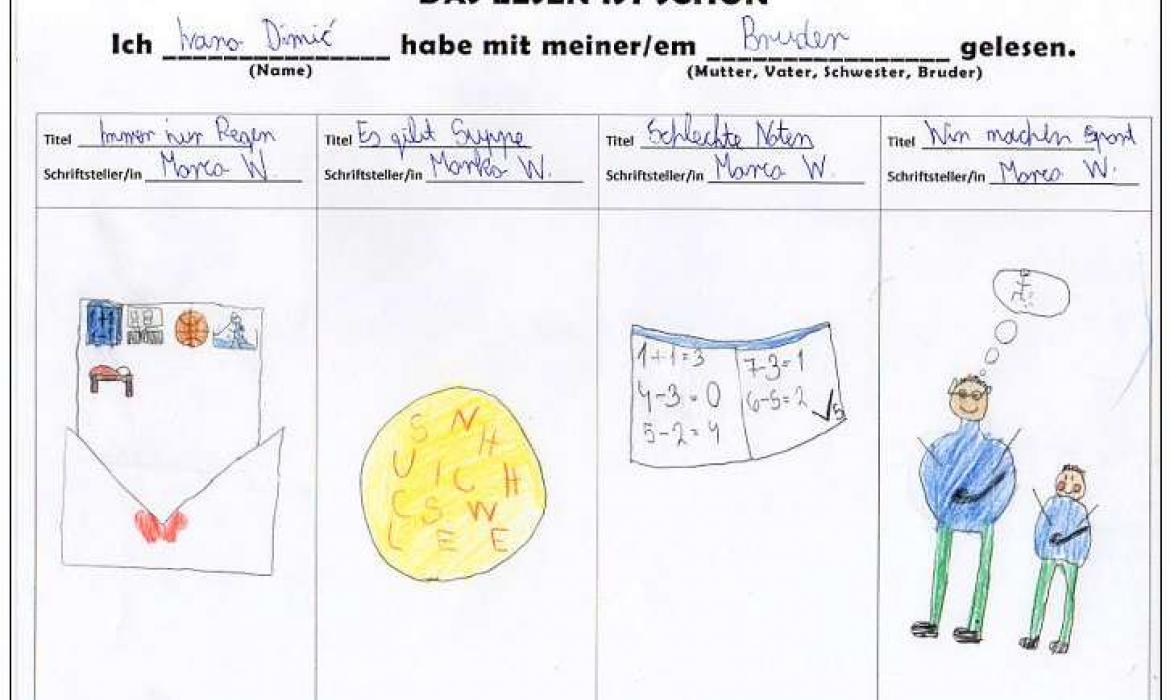 DAS LESEN IST SCHÖN
Ich Ivano Dimić habe mit meiner/em Bruder gelesen.
(Name) (Mutter, Vater, Schwester, Bruder)
Titel Immer nur Regen
Schriftsteller/in Marco W.
Titel Es gibt Suppe
Schriftsteller/in Marko W.
Titel Schlechte Noten
Schriftsteller/in Marco W.
Titel Wir machen Sport
Schriftsteller/in Marco W.
S N H
U I C H
C S W
L E E
1+1=3
4-3=0
5-2=4
7-3=1
6-5=2
5